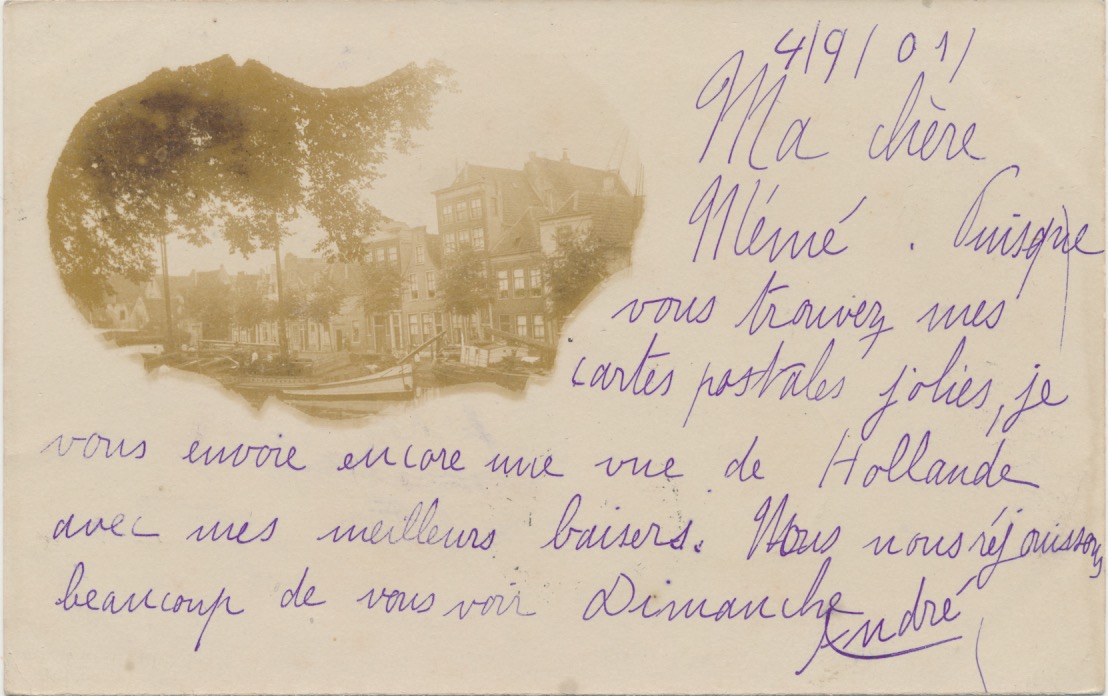 4/9/01/
Ma chère
Mémé. Puisque
vous trouvez mes
cartes postales jolies, je
vous envoie encore une vue de Hollande
avec mes meilleurs baisers. Nous nous réjouissons
beaucoup de vous voir Dimanche
André